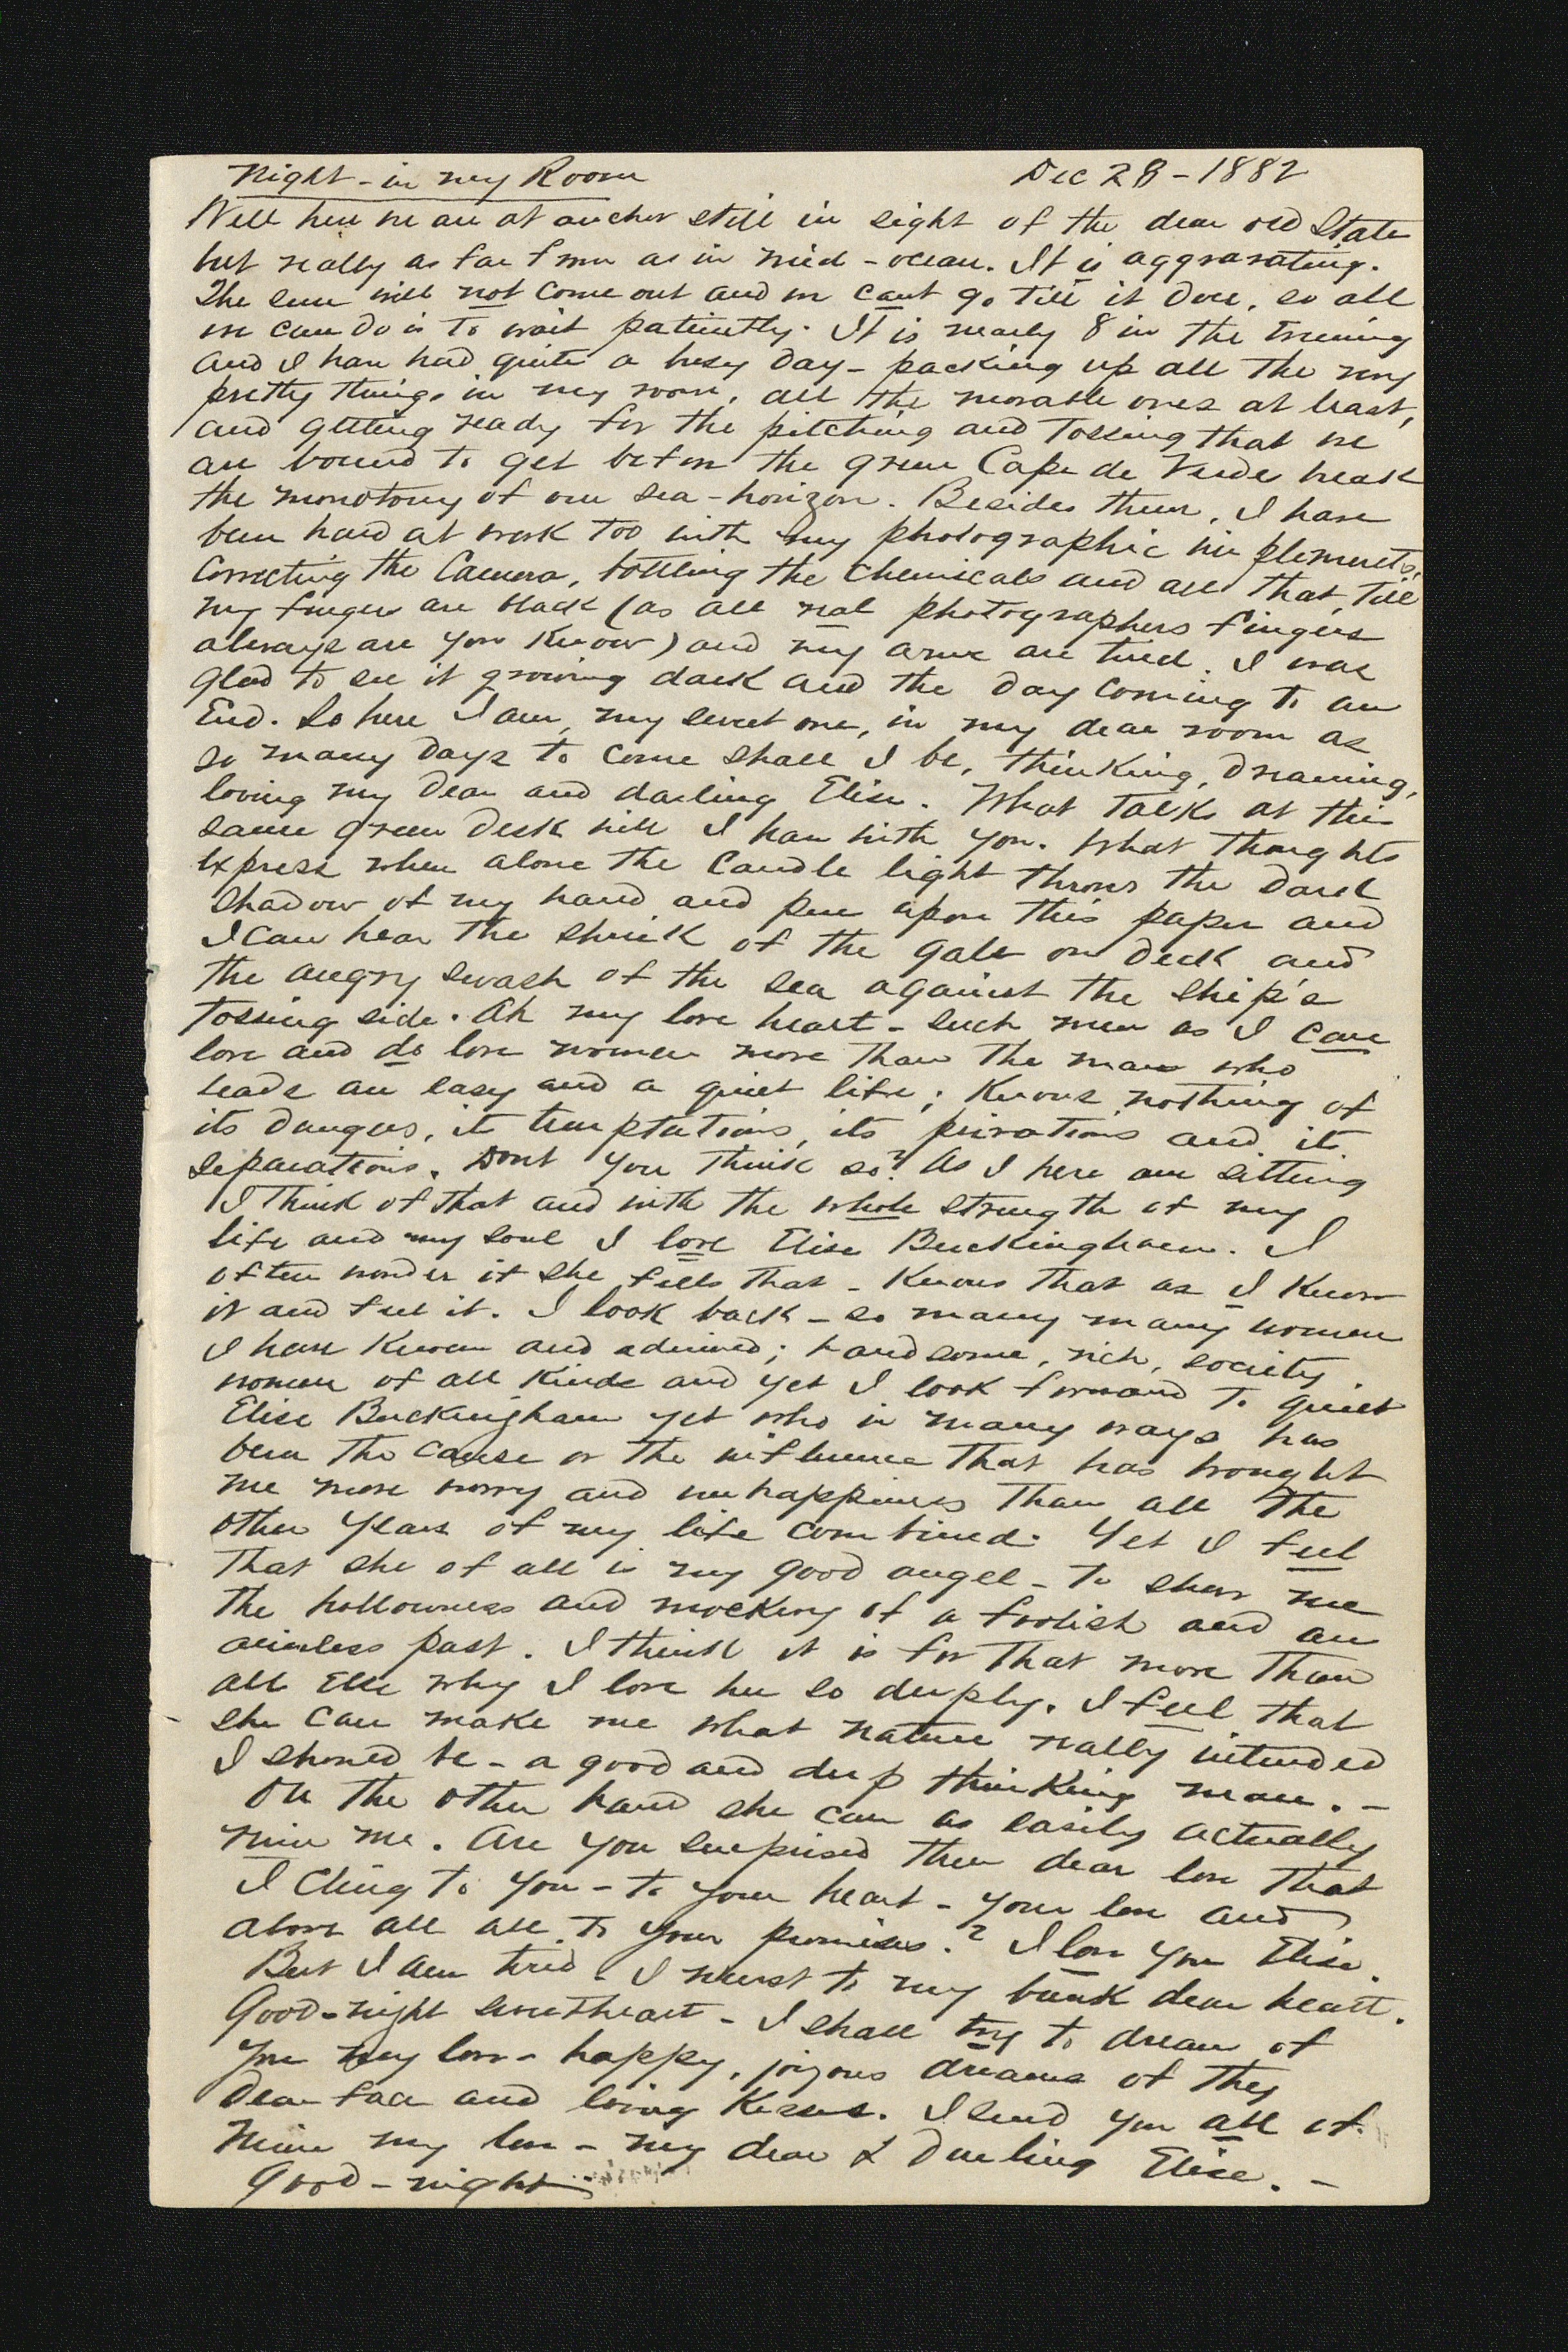 Night - in my Room Dec 28 - 1882
Well here we are at anchor still in sight of the dear old State
but really as far from as in mid-ocean. It is aggravating.
The sun will not come out and we cant go till it does, so all
we can do is to wait patiently. It is nearly 8 in the Evening
and I have had quite a busy day - packing up all the very
pretty things in my room, all the movable ones at least,
and getting ready for the pitching and tossing that we
are bound to get before the green Cape de Verdes break
the monotony of our sea-horizon. Besides them, I have
been hard at work too with my photographic implements,
Correcting the Camera, bottling the Chemicals and all that, till
my fingers are black (as all real photographers fingers
always are you know) and my arms are tired. I was
glad to see it growing dark and the day coming to an
End. So here I am, my sweet one, in my dear room as
so many days to come shall I be, thinking, dreaming,
loving my dear and darling Elise. What talks at this
same green desk will I have with you. What thoughts
Express when alone the Candle light throws the dark
shadow of my hand and pen upon this paper and
I can hear the shriek of the gale on deck and
the angry swash of the sea against the ship's
tossing side. Ah my love heart - such men as I can
love and do love women more than the man who
leads an easy and a quiet life; knows nothing of
its dangers, its temptations, its privations and its
separations. Dont you think so? As I here am sitting
I think of that and with the whole strength of my
life and my soul I love Elise Buckingham. I
often wonder if she feels that - knows that as I know
it and feel it. I look back - so many many women
I have known and admired; handsome, rich, society
women of all kinds and yet I look forward to quiet
Elise Buckingham yet who in many ways has
been the cause or the influence that has brought
me more worry and unhappiness than all the
other years of my life combined. Yet I feel
that she of all is my good angel - to show me
the hollowness and mockery of a foolish and an
aimless past. I think it is for that more than
all Else why I love her so deeply. I feel that
she can make me what nature really intended
I should be - a good and deep thinking man. -
On the other hand she can as easily actually
ruin me. Are you surprised then dear love that
I Cling to you - to your heart - your love and
above all all to your promises? I love you Elise.
But I am tired. I must to my bunk dear heart.
Good-night sweetheart - I shall try to dream of
you my love - happy, joyous dreams of thy
dear face and loving kisses. I send you all of
mine my love - my dear & darling Elise. -
Good-night